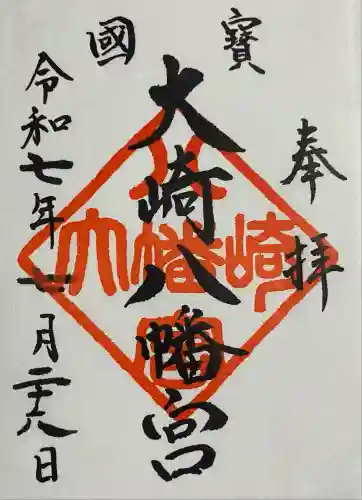 奉拝
寶
國
大崎八幡宮
令和七年
月二十八日
大崎八幡宮